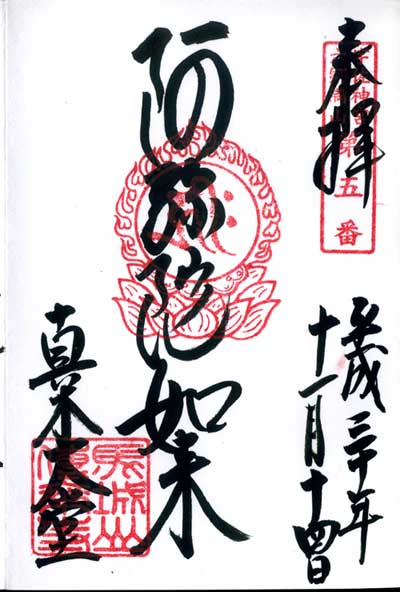 奉拝
第五番
平成三十年
十一月十四日
阿弥陀如来
真木大堂
馬城山